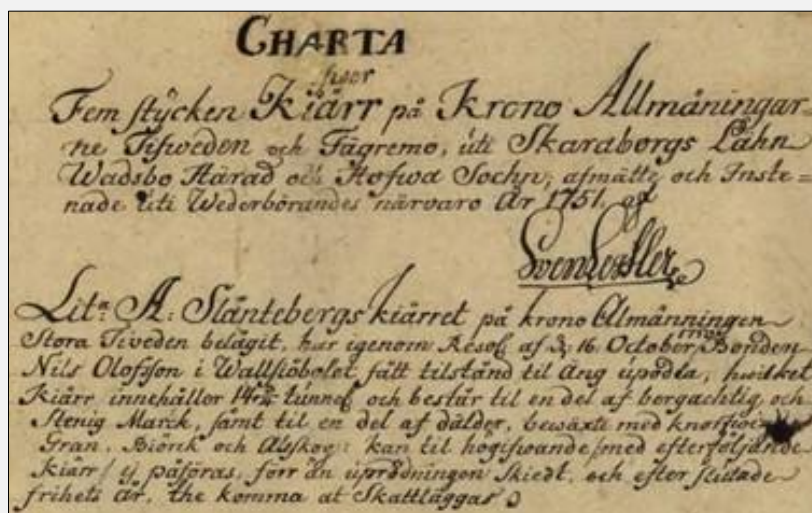 CHARTA
öfwer
Fem stycken Kiärr på Krono Allmäningar-
ne Tifweden och Fägremo, uti Skaraborgs Lähn
Wadsbo Härad och Hofwa Sochn, afmätte och Inste-
nade uti Wederbörandes närvaro År 1751. af
Sven
Litr. A: Släntebergs kiärret på krono Almänningen
Stora Tiveden belägit, har igenom Resol. af d. 16 October Bonden
Nils Olofsson i Wallsiöbolet fått tilstånd til Äng upodla, hwilket
Kiärr innehåller tunnel. och består til en del af bergachtig och
stenig Marck, samt til en del af dälder, bewäxte med
Gran, Biörck och Alskog: kan til högifwande /med efterföljande
kiärr/ ej påföras, förr än uprödningen skiedt, och efter slutade
frihets År, the komma at Skattläggas